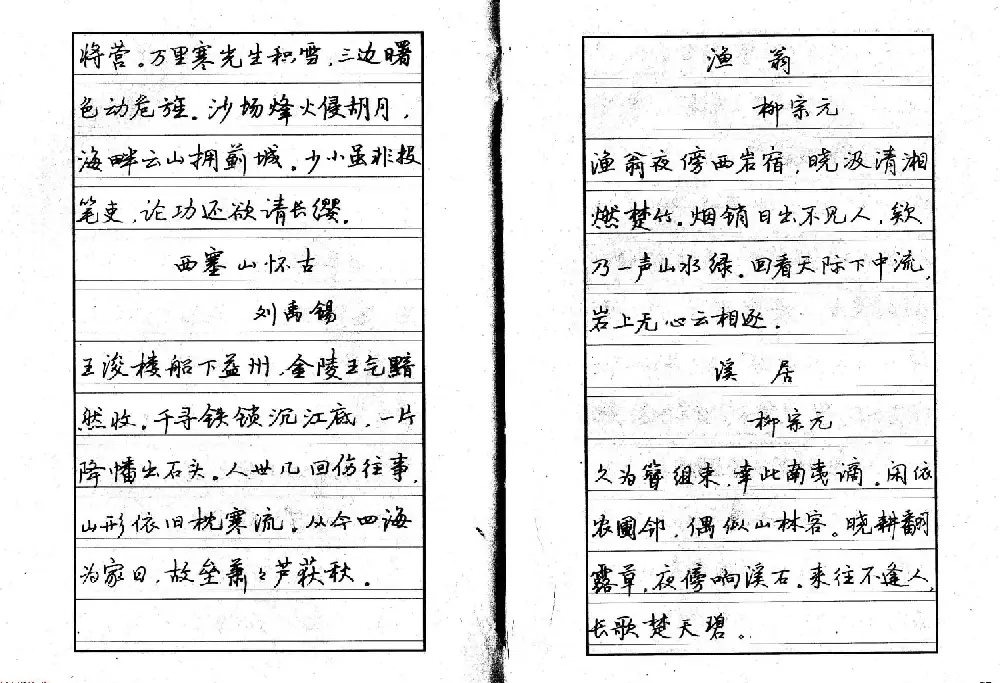 将营。万里寒光生积雪,三边曙
色动危旌。沙场烽火侵胡月,
海畔云山拥蓟城。少小虽非投
笔吏,论功还欲请长缨。
西塞山怀古
刘禹锡
王浚楼船下益州,金陵王气黯
然收。千寻铁锁沉江底,一片
降幡出石头。人世几回伤往事,
山形依旧枕寒流。从今四海
为家日,故垒萧々芦荻秋。
渔翁
柳宗元
渔翁夜傍西岩宿,晓汲清湘
燃楚竹。烟销日出不见人,欸
乃一声山水绿。回看天际下中流,
岩上无心云相逐。
溪居
柳宗元
久为簪组束,幸此南夷谪。闲依
农圃邻,偶似山林客。晓耕翻
露草,夜傍响溪石。来往不逢人,
长歌楚天碧。